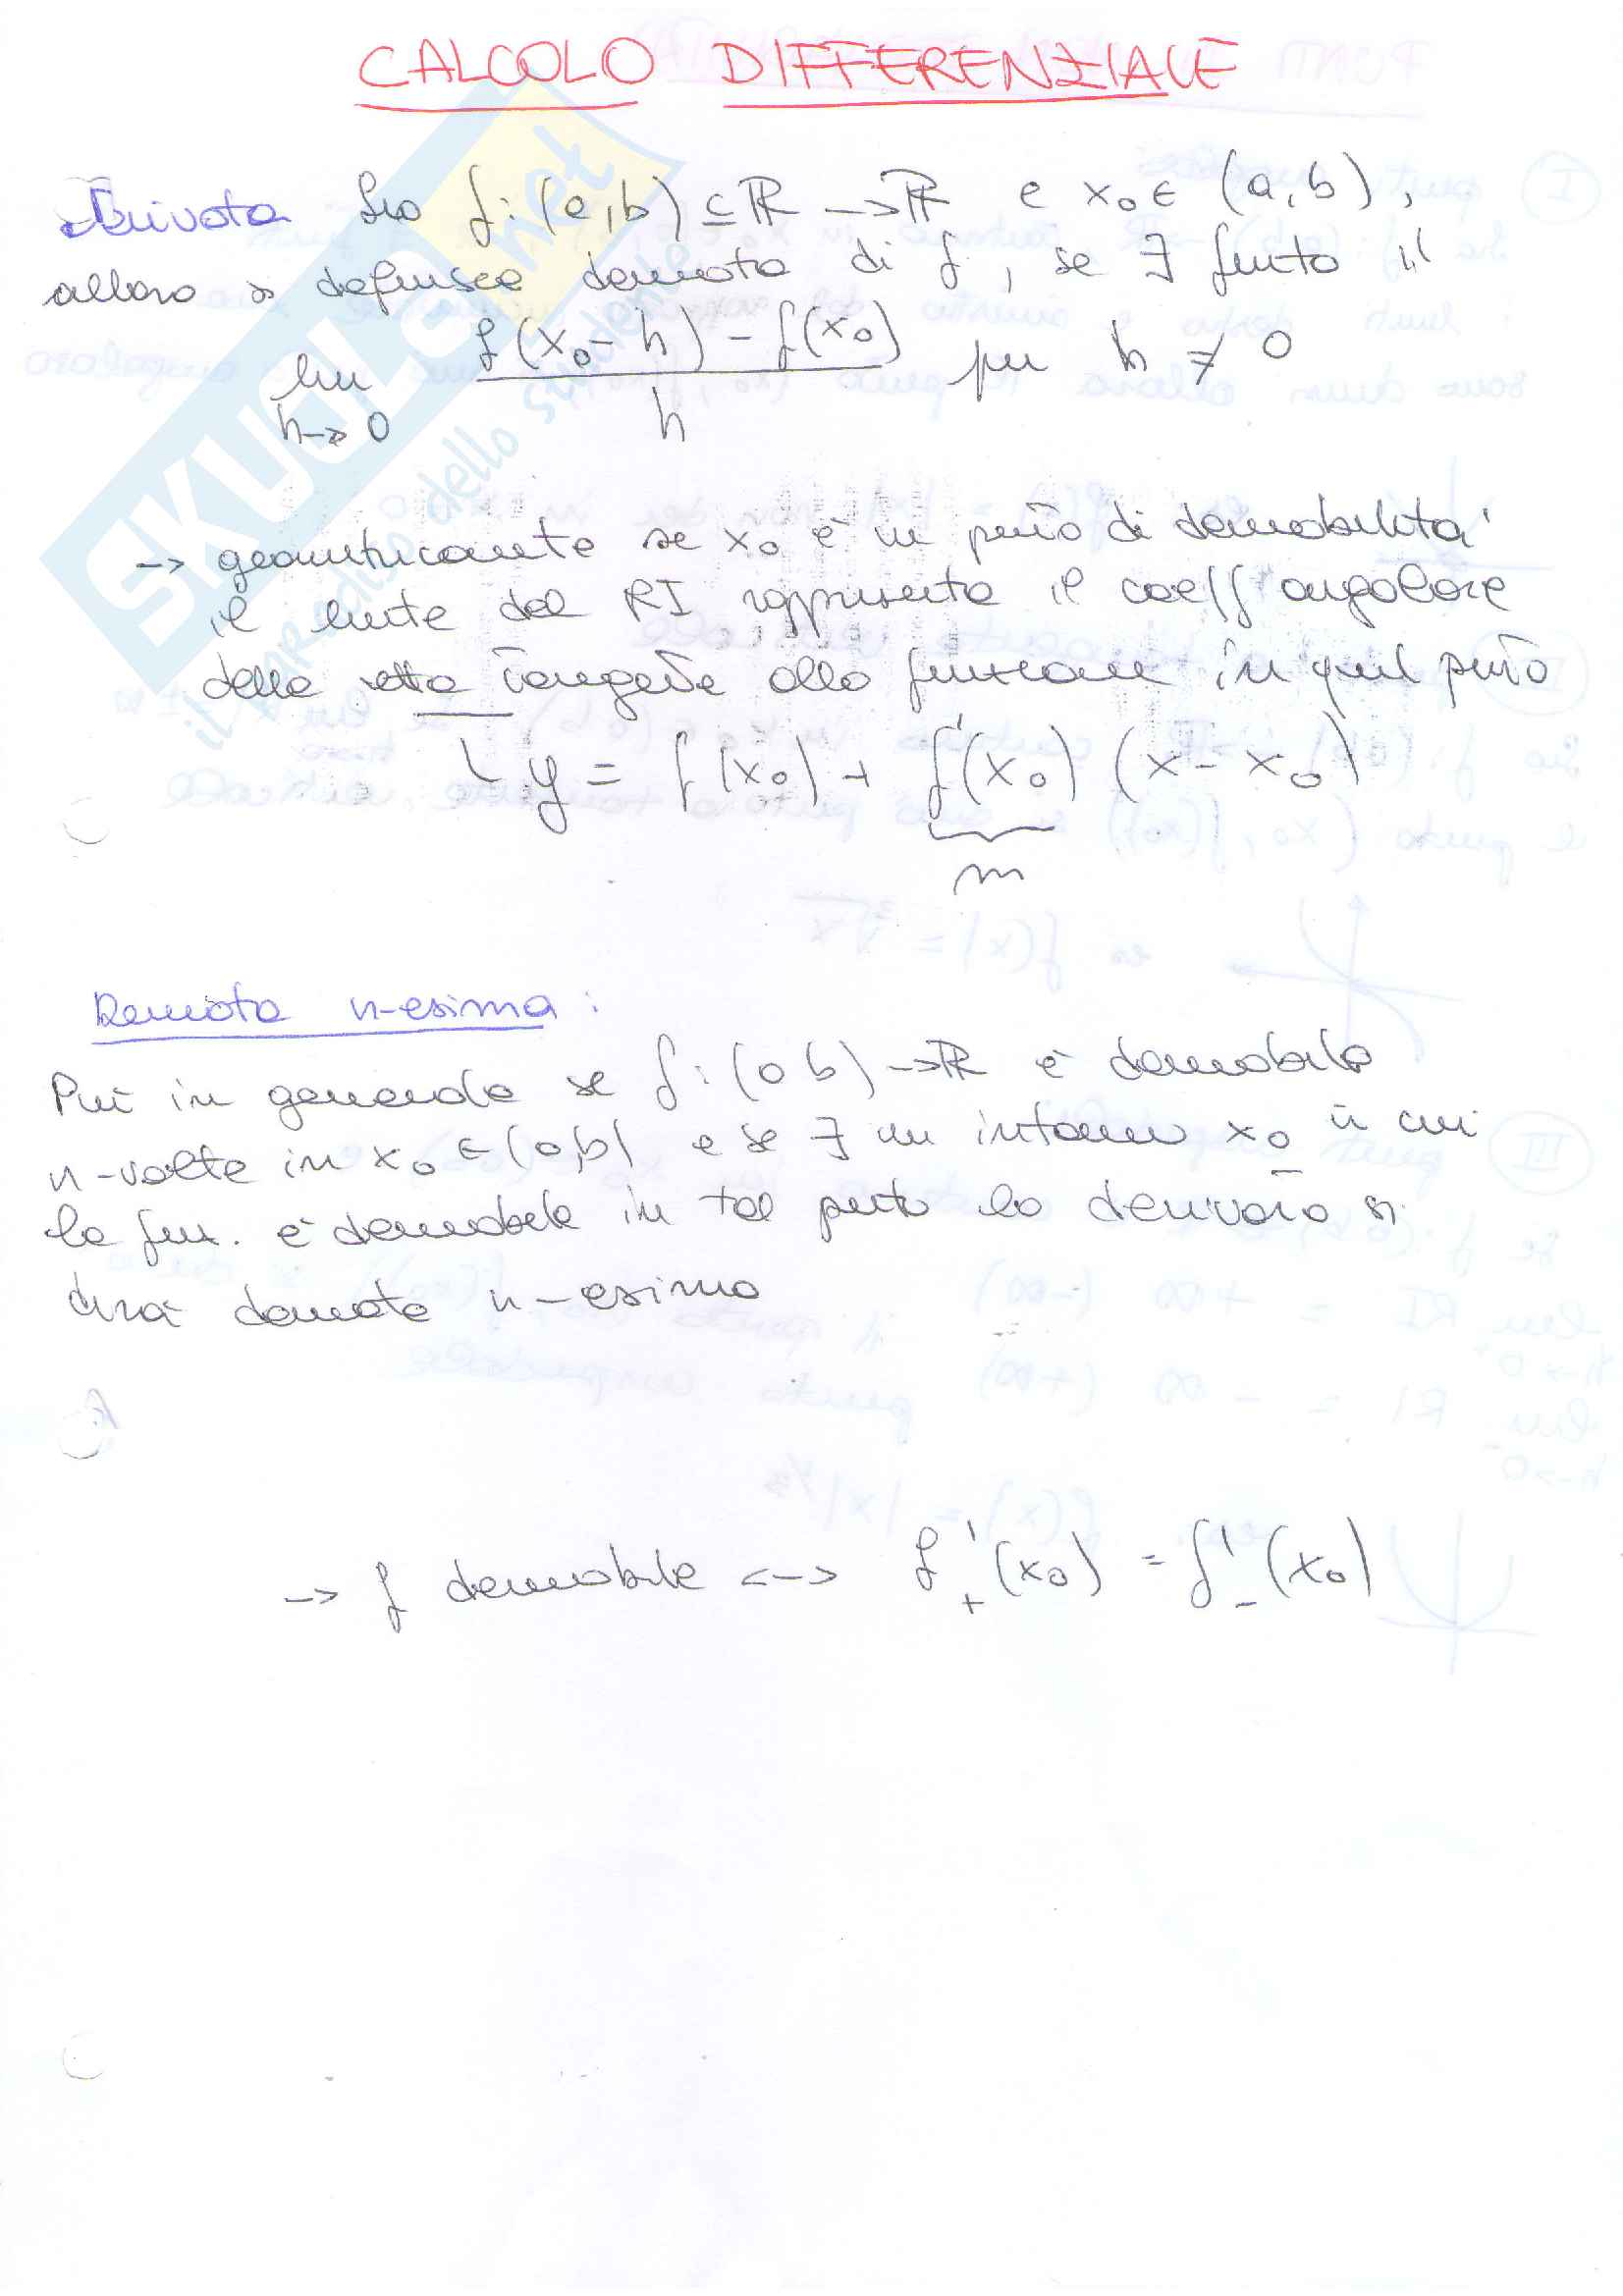 CALCOLO DIFFERENZIALE
Derivata Sia f: (a,b) ⊆ ℝ → ℝ e x₀ ∈ (a,b),
allora si definisce derivata di f, se ∃ finito il
lim h→0 f(x₀ - h) - f(x₀) / h per h ≠ 0
→ geometricamente se x₀ è un punto di derivabilità
il limite del RI rappresenta il coeff angolare
della retta tangente alla funzione in quel punto
↳ y = f(x₀) + f'(x₀) (x - x₀)
m
Derivata n-esima:
Più in generale se f: (a b) → ℝ è derivabile
n-volte in x₀ ∈ (a,b) e se ∃ un intorno x₀ in cui
la funz. è derivabile in tal punto la derivata si
dirà derivata n-esima
→ f derivabile <-> f'₊(x₀) = f'₋(x₀)
SKUOLA.net
il paradiso dello studente